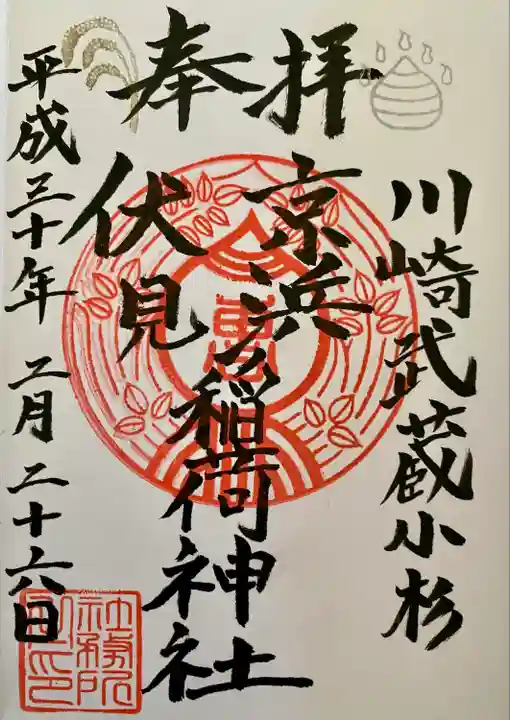 川崎武蔵小杉
奉拝
京浜伏見稲荷神社
平成三十年二月二十六日
社務所